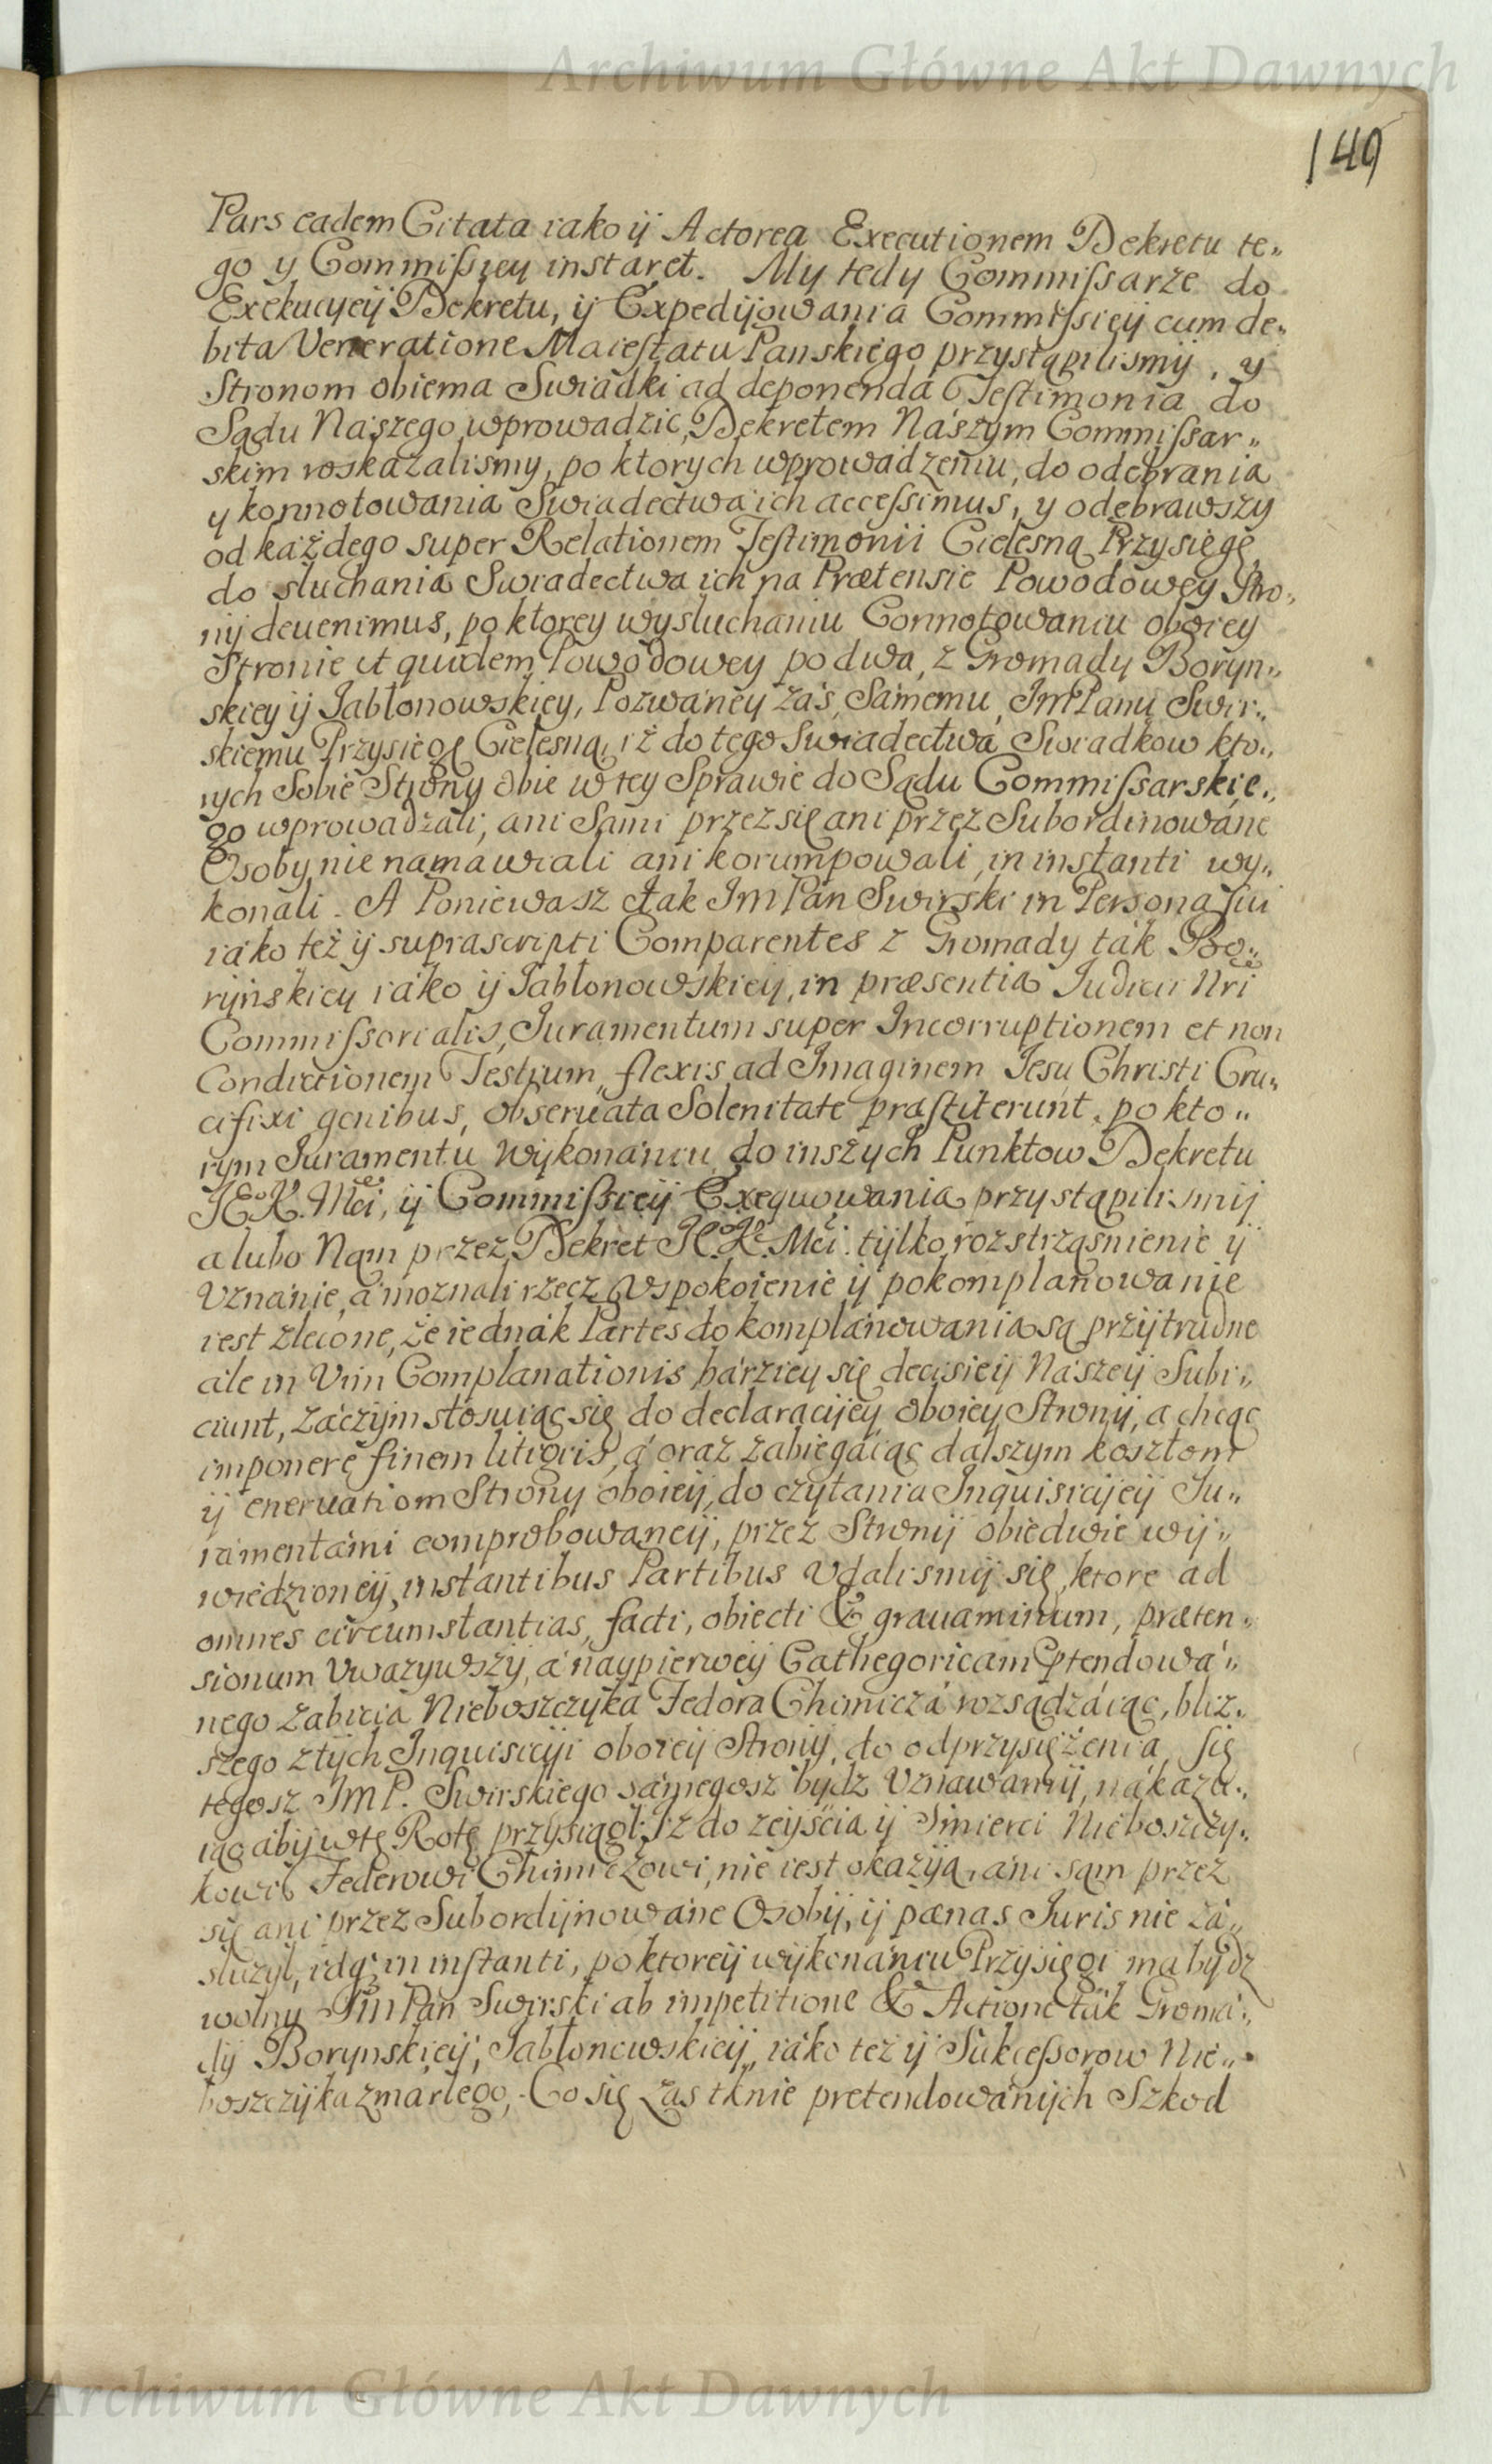 Archiwum Główne Akt Dawnych
149
Pars eadem Citata iako ij Actorea Executionem Dekretu te„
go y Commiſsiey instaret. My tedy Commiſsarze do
Exekucyeij Dekretu, ij Expedijowania Commiſsieij cum de„
bita Veneratione Maieſtatu Panskiego przystąpilismij, y
Stronom obiema Swiadki ad deponenda Teſtimonia do
Sądu Naszego wprowadzic, Dekretem Nászym Commiſsar„
skim roskazalismy, po ktorych wprowadzeniu, do odebrania
y konnotowania Swiadectwa ich acceſsimus, y odebrawszy
od każdego super Relationem Teſtimonii Cielesną Przysięgę,
do słuchania Swiadectwa ich na Prætensie Powodowey Stro„
nij deuenimus, po ktorey wysłuchaniu Connotowaniu oboiey
Stronie ut quidem Powodowey po dwa, z Gromady Boryn„
skiey ij Jabłonowskiey, Pozwáney zaś, Sámemu, JmPanu Swir„
skiemu Przysięgę Cielesną, iż do tego Swiadectwá Swiadkow kto„
rych Sobie Strony obie w tey Sprawie do Sądu Commiſsarskie„
go wprowadzali, ani Sami przez się ani przez Subordinowáne
Osoby nie namawiali ani korumpowali, in instanti wy„
konali. A Poniewasz ták JmPan Swirski in Persona ſui
iáko też ij suprascripti Comparentes z Gromady ták Bo„
ryinskiey iáko ij Jabłonowskieij, in præsentia Judicii Nri
Commiſsorialis, Juramentum super Incorruptionem et non
Condictionem Testium, flexis ad Imaginem Jesu Christi Cru„
cifixi genibus, obseruata Solenitate præſtiterunt, po kto„
rym Juramentu wykonániu do inszych Punktow Dekretu
JEoKMci, ij Commiſsieij Exequowania przystąpilismij
a lubo Nam przez Dekret JEoKMci. tijlko rozstrząśnienie ij
Vznánie, á moznali rzecz Vspokoienie ij pokomplanowanie
iest zlecone, że iednák Partes do komplánowania są przijtrudne
ále in Vim Complanationis bárziey się decisieij Nászeij Subi„
ciunt, záczijm stosuiąc się do declaracijey oboiey Stronij, a chcąc
imponere finem litigiis, á oraz zabiegáiąc dalszym kosztom
ij eneruatiom Strony oboieij, do czytania Inquisicijeij Ju„
ramentámi comprobowaneij, przez Stronij obiedwie wij„
wiedzioneij, instantibus Partibus Vdalismij się, ktore ad
omnes circumstantias, facti, obiecti & grauaminum, præten„
sionum Vwazywszij, á naypierweij Cathegoricam Ptendowá„
nego zabicia Nieboszczyká Fedora Chomiczá rozsądzáiąc, bliz„
szego z tijch Inquisicijí oboieij Stronij, do odprzysiężenia się
tegosz JmP. Swirskiego sámegosz bydz Vznawamij, nákazu„
iąc ábij w tę Rotę przysiągł: Iż do zeijścia ij Smierci Nieboszczy„
kowi Federowi Chomiczowi, nie iest okazyą, áni sąm przez
się ani przez Subordijnowáne Osobij, ij pænas Juris nie zá„
służył, idq; in inſtanti, po ktoreij wijkonániu Przysięgi ma bydz
wolny JmPan Swirski ab impetitione & Actione ták Gromá„
dij Borynskieij, Jabłonowskieij, iáko też ij Sukceſsorow Nie„
boszczijka zmarłego. Co się zas tknie pretendowánijch Szkod
Archiwum Główne Akt Dawnych